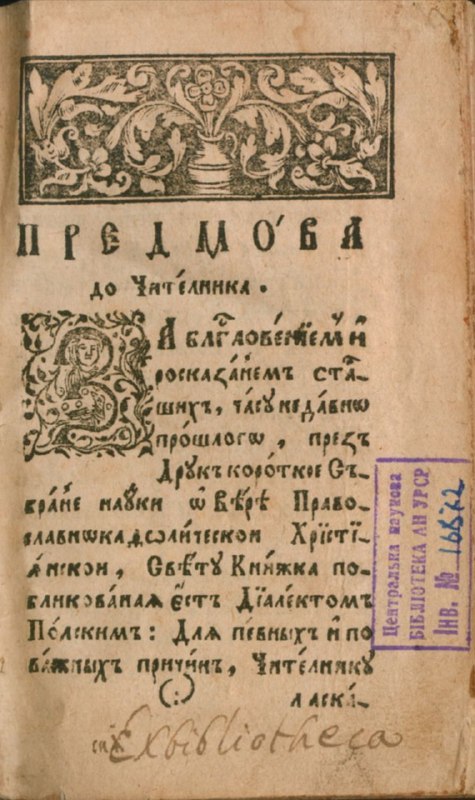 ПРЕДМО́ВА
до Чите́лника.
ЗА блг҃ослове́нїемъ и҆
росказа́немъ ста́-
шихъ, ча́су неда́внѡ
про́шлогѡ, презъ
Друкъ коро́ткое Съ-
бра́не нау́ки ѡ Вѣ́рѣ Право-
славнѡкаѳоли́ческои Хрїстїѧ́-
ѧ́нскои, Свѣ́ту Кни́жка по-
бликова́наѧ є҆стъ Дїале́ктомъ
По́лскимъ: Для пе́вныхъ и҆ по
ва́жныхъ причи́нъ, Чите́лнику
(:)
ласка́-
Exbibliotheca
Центральна наукова
БІБЛІОТЕКА АН УРСР
ІНВ. № 16872